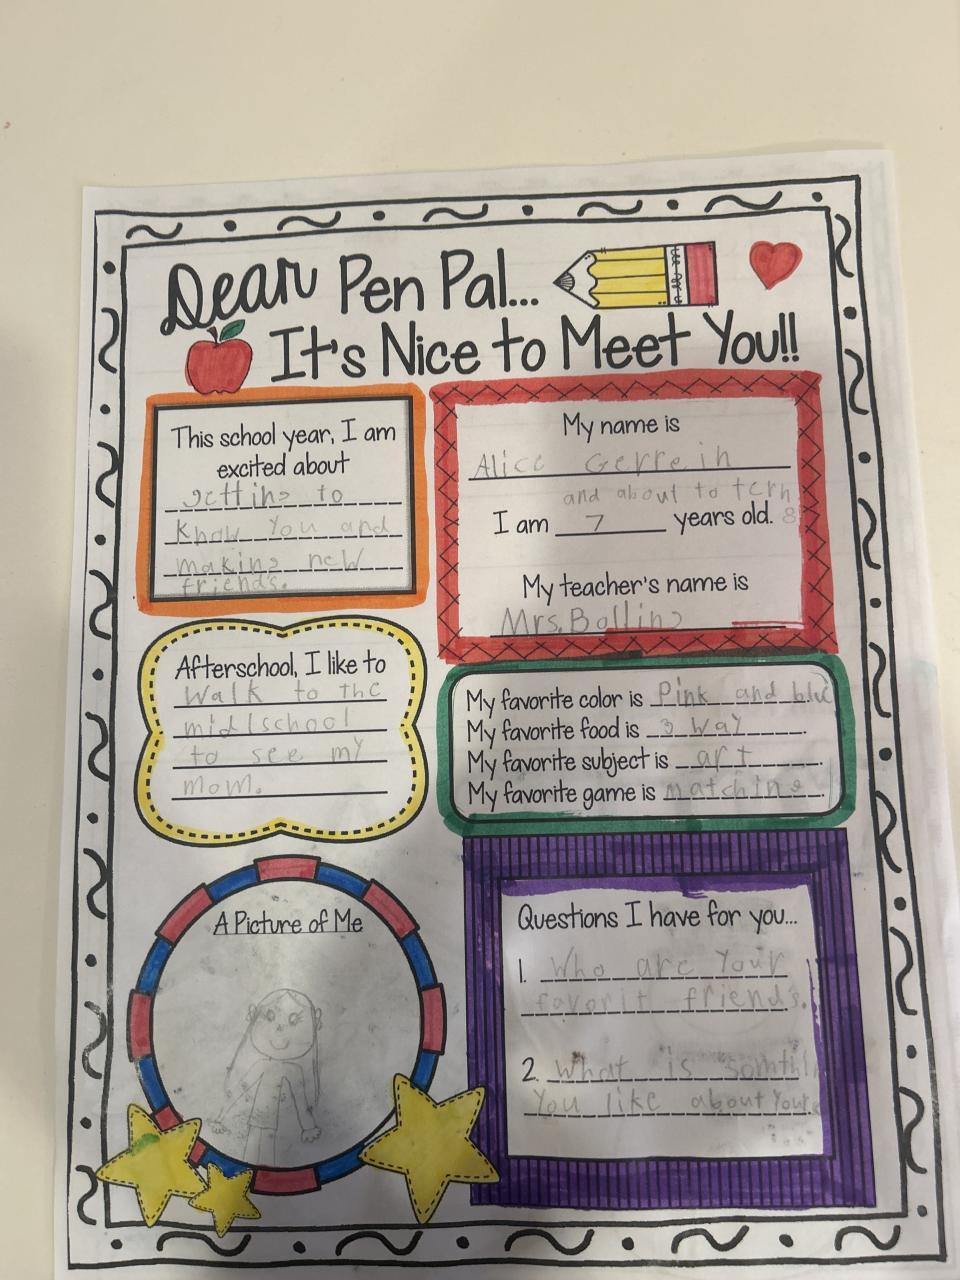 Dear Pen Pal...
It's Nice to Meet You!!
This school year, I am
excited about
getting to
know you and
making new
friends.
My name is
Alice Gerrein
and about to tern
I am 7 years old. 8
My teacher's name is
Mrs. Bolling
Afterschool, I like to
Walk to the
midlschool
to see my
mom.
My favorite color is Pink and blue.
My favorite food is 3 way.
My favorite subject is art.
My favorite game is matching.
A Picture of Me
Questions I have for you...
1. Who are your
favorit friends.
2. What is
You like about